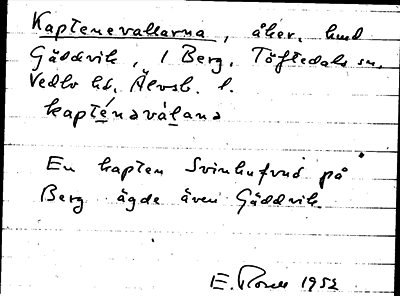 Kaptenevallarna, åker, hmd
Gäddvik, 1 Berg, Töftedals sn,
Vedbo hd, Älvsb. l.
kapténaváḷana
En kapten Svinhufvud på
Berg ägde även Gäddvik
E. 1952